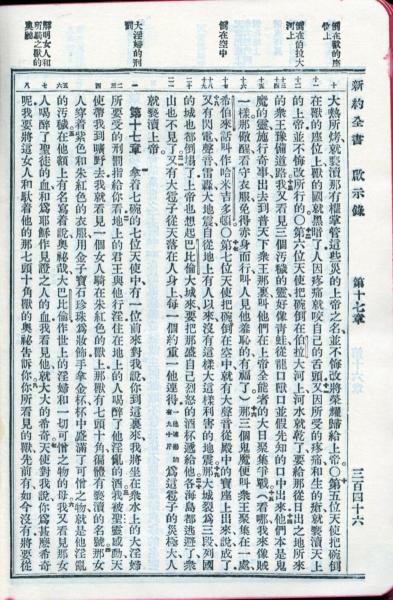 新約全書 啟示錄 第十七章 三百四十六
倒在獸的座位上
倒在伯拉大河上
倒在空中
大淫婦的刑罰
解明女人和所騎之獸的奧祕
十 大熱所烤就褻瀆那有權掌管這些災的上帝之名並不悔改將榮耀歸給上帝○第五位天使把碗倒
十一 在獸的座位上獸的國就黑暗了人因疼痛就咬自己的舌頭又因所受的疼痛和生的瘡就褻瀆天上
十二 的上帝並不悔改所行的○第六位天使把碗倒在伯拉大河上河水就乾了要給那從日出之地所來
十三 的衆王豫備道路我又看見三個汚穢的靈好像青蛙從龍口獸口並假先知的口中出來他們本是鬼
十四十五 魔的靈施行奇事出去到普天下衆王那裏叫他們在上帝全能者的大日聚集爭戰（看哪我來像賊
十六 一樣那儆醒看守衣服免得赤身而行叫人見他羞恥的有福了）那三個鬼魔便叫衆王聚集在一處
十七 希伯來話叫作哈米吉多頓○第七位天使把碗倒在空中就有大聲音從殿中的寶座上出來說成了
十八十九 又有閃電聲音雷轟大地震自從地上有人以來沒有這樣大這樣利害的地震那大城裂為三段列國
二十 的城也都倒塌了上帝也想起巴比倫大城來要把那盛自己烈怒的酒杯遞給他各海島都逃避了衆
二一 山也不見了又有大雹子從天落在人身上每一個約重一他連得一他連得約有九十斤為這雹子的災極大人
就褻瀆上帝
一 第十七章 拿着七碗的七位天使中有一位前來對我說你到這裏來我將坐在衆水上的大淫婦
二三 所要受的刑罰指給你看地上的君王與他行淫住在地上的人喝醉了他淫亂的酒我被聖靈感動天
四 使帶我到曠野去我就看見一個女人騎在朱紅色的獸上那獸有七頭十角徧體有褻瀆的名號那女
人穿着紫色和朱紅色的衣服用金子寶石珍珠為妝飾手拿金杯杯中盛滿了可憎之物就是他淫亂
五六 的汚穢在他額上有名寫着說奧祕哉大巴比倫作世上的淫婦和一切可憎之物的母我又看見那女
七 人喝醉了聖徒的血和為耶穌作見證之人的血我看見他就大大的希奇天使對我說你為甚麼希奇
八 呢我要將這女人和馱着他的那七頭十角獸的奧祕告訴你你所看見的獸先前有如今沒有將要從